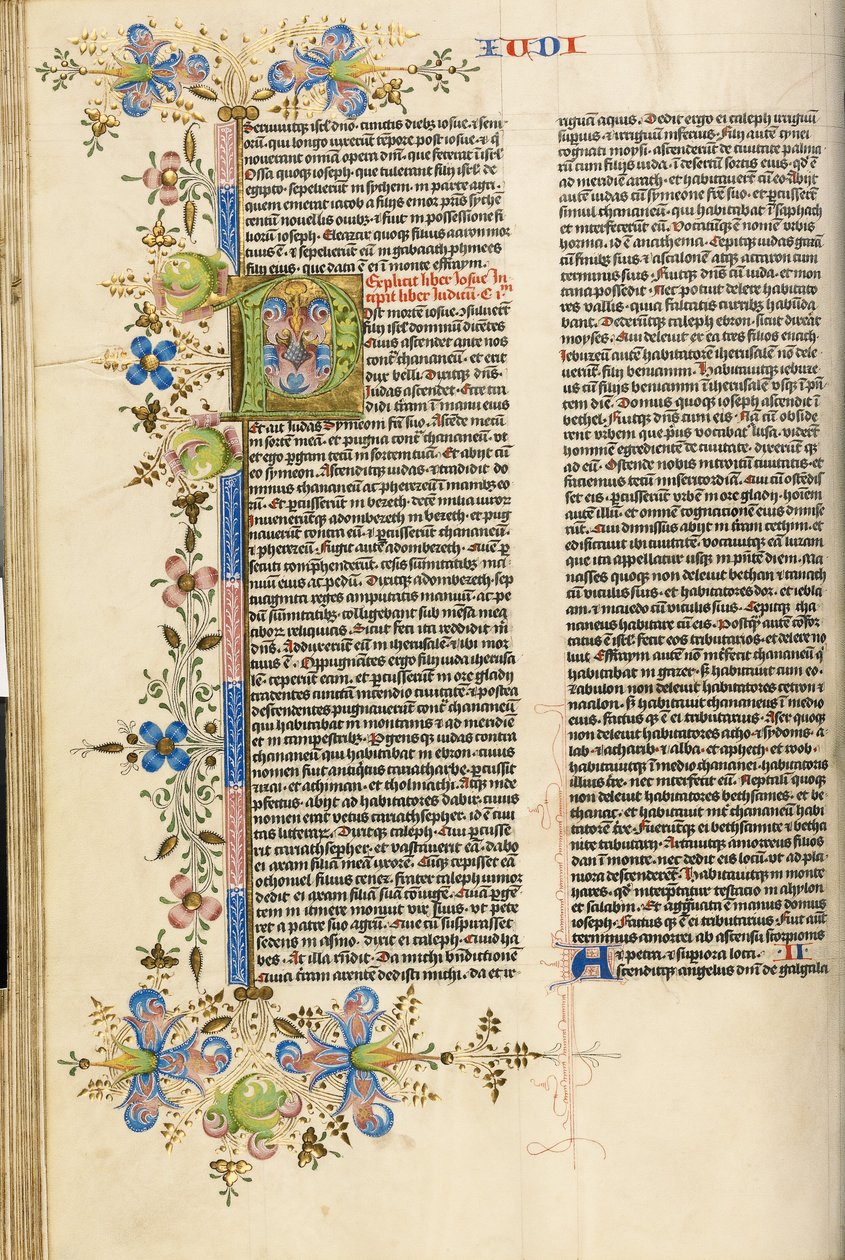 IUDI
Seruiuitqȝ isrł dño cunctis diebȝ iosue ⁊ seni
orū qui longo vixerūt tēpore post iosue ⁊ q
nouerant omnia opera dñi que fecerat ī isrł
Ossa quoqȝ ioseph que tulerant filij isrł de
egipto sepelierūt in sychem in parte agri
quem emerat iacob a filijs emor pr̄is syche
centū nouellis ouibȝ ⁊ fuit in possessionē fi
liorū ioseph Eleazar quoqȝ filius aaron mor
tuus ē ⁊ sepelierūt eū in gabaath phynees
filij eius que data ē ei ī monte effraym
Explicit liber Iosue In
cipit liber Iudicū C i
Post mortē iosue ɔsuluerūt
filij isrł dominū dicētes
Quis ascendet ante nos
contᵃ chananeū et erit
dux belli Dixitqȝ dn̄s
Iudas ascendet Ecce tra
didi t̄ram ī manū eius
Et ait iudas Symeoni fr̄i suo Ascēde mecū
in sortē meā et pugna contᵃ chananeū vt
et ego pergam tecū in sortem tuā Et abijt cū
eo symeon Ascenditqȝ iudas ⁊ tradidit do
minus chananeū ac pherezeū ī manibȝ eo
rū Et percusserūt in bezech decē milia viror
Inueneruntqȝ adonibezech in bezech et pug
nauerūt contra eū ⁊ percusserūt chananeū
⁊ pherezeū Fugit autē adonibezech Quē per
secuti comp̄henderūt cesis sūmitatibȝ ma
nuū eius ac pedū Dixitqȝ adonibezech sep
tuaginta reges amputatis manuū ac pe
dū sūmitatibȝ colligebant sub mēsa mea
ciborū reliquias Sicut feci ita reddidit m̄
dn̄s Adduxerūt eū in iherusalē ⁊ ibi mor
tuus ē Oppugnātes ergo filij iuda iherusa
lē ceperūt eam et percusserūt in ore gladij
tradentes cunctā incendio ciuitatē ⁊ postea
descendentes pugnauerūt contᵃ chananeū
qui habitabat in montanis ⁊ ad meridiē
et in campestribȝ Pergens qȝ iudas contra
chananeū qui habitabat in ebron cuius
nomen fuit antiquitus cariatharbe percussit
sizai et achiman et tholmai Atqȝ inde
profectus abijt ad habitatores dabir cuius
nomen erat vetus cariathsepher id ē ciui
tas litterarū Dixitqȝ caleph Qui percusse
rit cariathsepher et vastauerit eā dabo
ei axam filiā meā vxorē Cūqȝ cepisset eā
othoniel filius cenez frater caleph iunior
dedit ei axam filiā suā cōiugē Quā perge
tem in itinere monuit vir suus vt pete
ret a patre suo agrū Que cū suspirasset
sedens in asino dixit ei caleph Quid ha
bes At illa rn̄dit Da michi bn̄dictionē
Quia t̄ram arentē dedisti michi da et ir
riguā aquis Dedit ergo ei caleph irriguū
supius ⁊ irriguū inferius Filij autē cynei
cognati moysi ascenderūt de ciuitate palma
rū cum filijs iuda ī desertū sortis eius qd̄ ē
ad meridiē arath et habitauerūt cū eo Abijt
autē iudas cū symeone fr̄e suo et percusserūt
simul chananeū qui habitabat ī saphach
et interfecerūt eū Vocatūqȝ ē nomē vrbis
horma id ē anathema Cepitqȝ iudas gazā
cū finibȝ suis ⁊ ascalonē atqȝ accaron cum
terminis suis Fuitqȝ dn̄s cū iuda et mon
tana possedit Nec potuit delere habitato
res vallis quia falcatis curribȝ habūda
bant Dederūtqȝ caleph ebron sicut dixerat
moyses Qui deleuit ex ea tres filios enach
Iebuzeū autē habitatorē iherusalē nō dele
uerūt filij beniamin Habitauitqȝ iebuze
us cū filijs beniamin ī iherusalē vsqȝ ī pn̄
tem diē Domus quoqȝ ioseph ascendit ī
bethel Fuitqȝ dn̄s cum eis Nā cū obside
rent vrbem que prius vocabatᷣ lusa viderūt
hominē egredientē de ciuitate dixerūt qȝ
ad eū Ostende nobis introitū ciuitatis et
faciemus tecū misericordiā Qui cū ostēdis
set eis percusserūt vrbē in ore gladij hoīem
autē illū et omnē cognationē eius dimise
rūt Qui dimissus abijt in t̄ram cethym et
edificauit ibi ciuitatē vocauitqȝ eā luzam
que ita appellatur usqȝ in pn̄tē diem Ma
nasses quoqȝ non deleuit bethan ⁊ tanach
cū viculis suis et habitatores dor et iebla
am ⁊ macedo cū viculis suis Cepitqȝ cha
naneus habitare cū eis Postqᷓ autē cōfor
tatus ē isrł fecit eos tributarios et delere no
luit Effraym autē nō int̄fecit chananeū q
habitabat in gazer sȝ habitauit cum eo
Zabulon non deleuit habitatores cetron ⁊
naalon sȝ habitauit chananeus ī medio
eius Factus qȝ ē ei tributarius Aser quoqȝ
non deleuit habitatores acho ⁊ sydonis a
lab ⁊ achazib ⁊ alba et aphech et roob
habitauitqȝ ī medio chananei habitatoris
illius t̄re nec interfecit eū Neptalī quoqȝ
non deleuit habitatores bethsames et be
thanath et habitauit int̄ chananeū habi
tatorē t̄re Fueruntqȝ ei bethsamite ⁊ betha
nite tributarij Artauitqȝ amorreus filios
dan ī monte nec dedit eis locū vt ad pla
niora descenderēt Habitauitqȝ in monte
hares qd̄ interpretatur testatio in ahylon
et salabim Et aggrauata ē manus domus
ioseph Factus qȝ ē ei tributarius Fuit autē
terminus amorrei ab ascensu scorpionis
et petra ⁊ supiora loca II
Ascenditqȝ angelus dn̄i de galgala